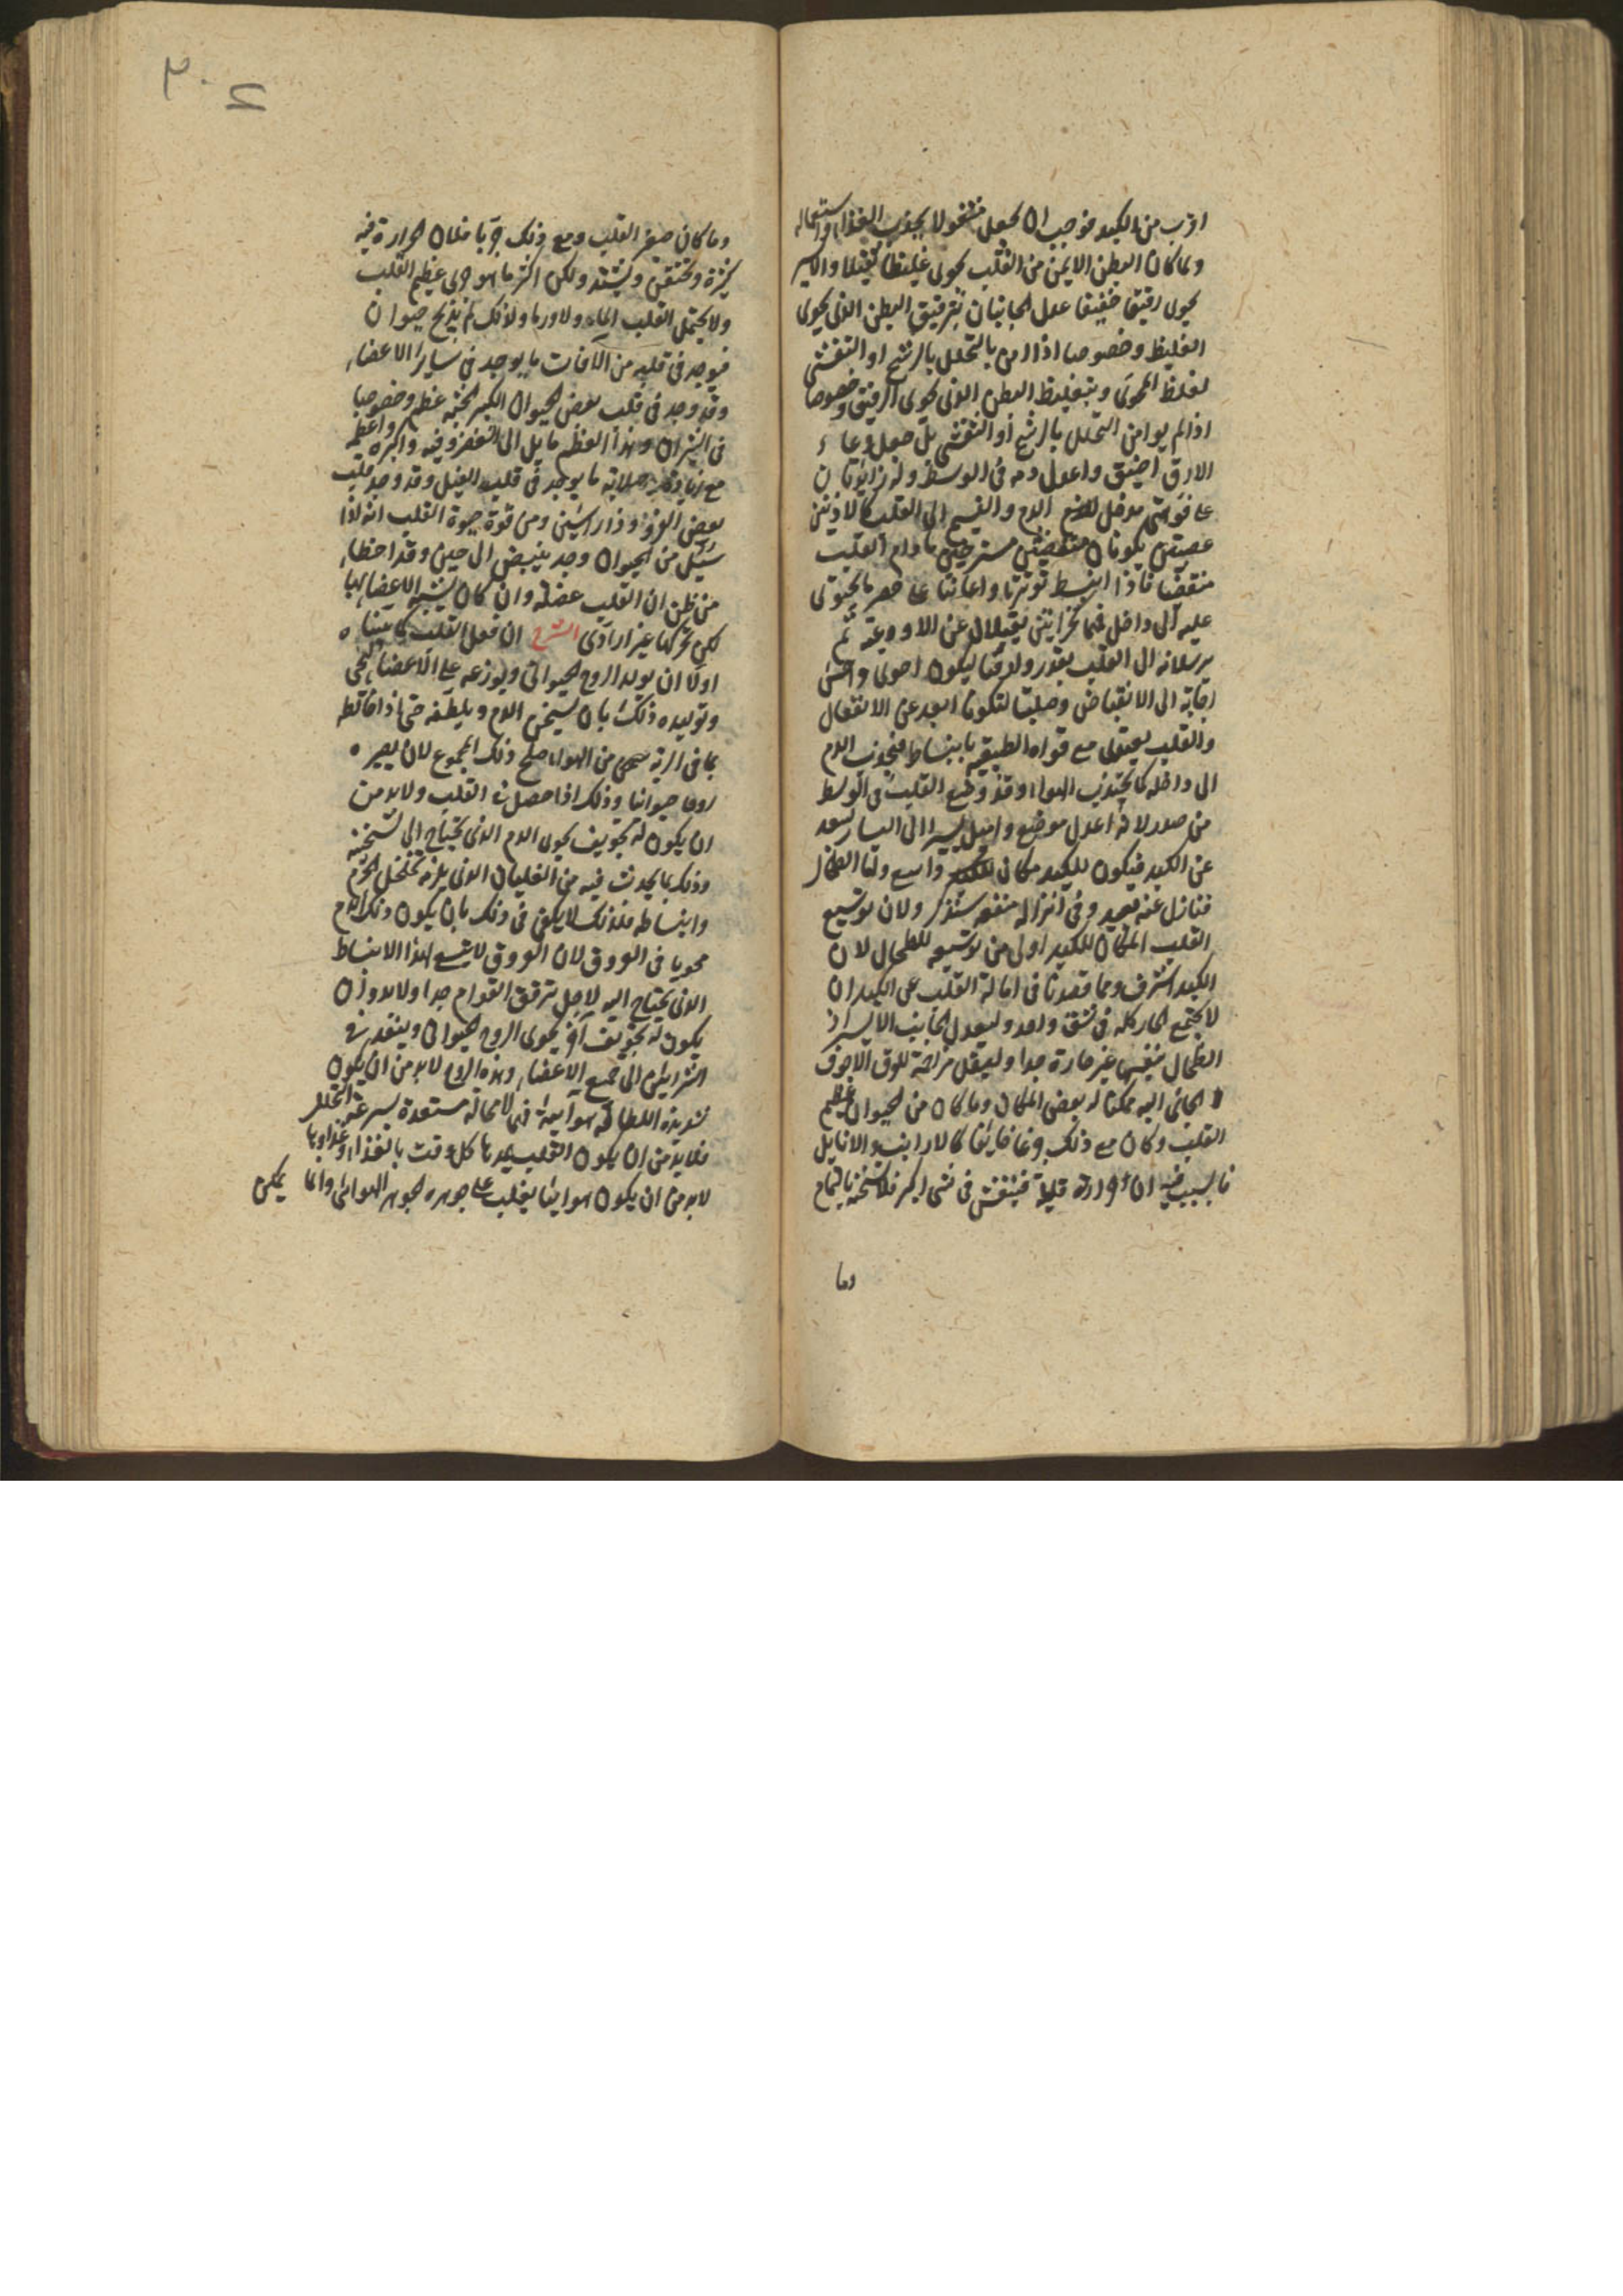 اقرب من الكبد فوجب ان يجعل مشغولا بجذب الغذاء واستعماله
ولما كان البطن الايمن من القلب يحوى غليظا ثقيلا والايسر
يحوى رقيقا خفيفا عدل الجانبان بترقيق البطن الذى يحوى
الغليظ وخصوصا اذا امن بالتحلل بالرشح او التفشى
لغلظ المحوى وبتغليظ البطن الذى يحوى الرقيق وخصوصا
اذا لم يؤمن التحلل بالرشح او التفشى بل جعل وعاء
الارق اضيق واعدل دمه فى الوسط وله زائدتان
على فوهتى مدخل الدم والنسيم الى القلب كالاذنين
عصبيتين يكونان متغضنتين مسترخيتين ما دام القلب
منقبضا فاذا انبسط توترتا واعانتا على حصر ما يحتوى
عليه الى داخل فهما كخزانتين يقبلان عن الاوعية ثم
يرسلانه الى القلب بقدر ورققتا ليكون احوى واحسن
اجابة الى الانقباض وصلبتا لتكونا ابعد عن الانفعال
والقلب يغتذى مع قواه الطبيعية بانبساط فيجذب الدم
الى داخله كما يجتذب الهواء وقد وضع القلب فى الوسط
من صدر لانه اعدل موضع واميل يسيرا الى اليسار لبعد
عن الكبد فيكون للكبد مكان واسع واما الطحال
فنازل عنه بعيد وفى انزاله منفعة ستذكر ولان توسيع
القلب المكان للكبد اولى من توسيعه للطحال لان
الكبد اشرف ومما قصد ثا فى امالة القلب عن الكبد ان
لا يجتمع الحار كله فى شق واحد وليعدل الجانب الايسر اذ
الطحال بنفسه غير حارة جدا وليقل مزاحمة للعرق الاجوف
الجائى اليه ممكنا له بعض المكان وما كان من الحيوان عظيم
القلب وكان مع ذلك جزعا خائفا كالارانب والايايل
فالسبب فيه ان حرارته قليلة فينفش فى شى اكبر فلا تسخنه بالتمام
وما
وما كان صغير القلب ومع ذلك جريا فلان الحرارة فيه
كثيرة وتحتقن وتشتد ولكن اكثر ما هو جرى عظيم القلب
ولا يحتمل القلب الما ولا ورما ولذلك لم يذبح حيوان
فيوجد فى قلبه من الآفات ما يوجد فى سائر الاعضاء
وقد وجد فى قلب بعض الحيوان الكبير الجثه عظم وخصوصا
فى الثيران وهذا العظم مايل الى الغضروفيه واكبره واعظمه
مع زيادة صلابته ما يوجد فى قلب الفيل وقد وجد قلب
بعض القرود ذا راسين ومن قوة حيوة القلب انه اذا
سل من الحيوان وجد ينبض الى حين وقد اخطا
من ظن ان القلب عضله وان كان اشبه الاعضاء بها
لكن تحركها غير ارادى الشرح ان فعل القلب كما بينا
اولا ان يولد الروح الحيوانى ويوزعه على الاعضاء لتحيى
وتوليده ذلك بان يسخن الدم ويلطفه حتى اذا خالطه
بما فى الريه من الهواء صلح ذلك المجموع لان يصير
روحا حيوانيا وذلك اذا حصل فى القلب ولا بد من
ان يكون له تجويف يحوى الدم الذى يحتاج الى تسخينه
وذلك بما يحدث فيه من الغليان الذى يلزمه تخلخل الجرم
وانبساطه فلذلك لا يكفى فى ذلك بان يكون ذلك الدم
محويا فى العروق لان العروق لا يتسع لهذا الانبساط
الذى يحتاج اليه لاجل ترقق القوام جدا ولا بد وان
يكون له تجويف آخر يحوى الروح الحيوانى وينفذ فى
الشرايين الى جميع الاعضاء وهذه الروح لا بد من ان يكون
شديدة اللطافه هوائية فهى لا محالة مستعدة بسرعه التحلل
فلا بد من ان يكون القلب يمدها كل وقت بالغذاء وغذاوها
لا بد من ان يكون هوائيا يغلب على جوهره الجوهر الهوائى وانما يمكن